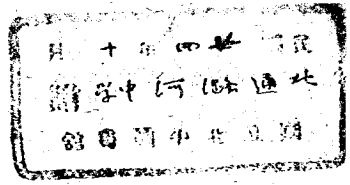 民國廿四年十月
北通潞河中學贈
國立北平圖書館